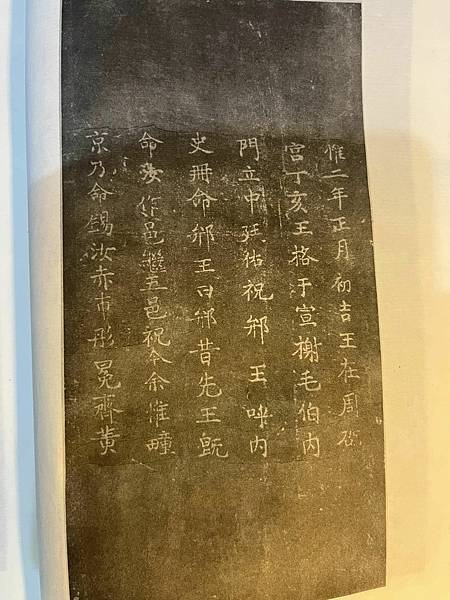 惟二年正月初吉王在周邵
宮丁亥王格于宣榭毛伯内
門立中廷祐祝郱王呼内
史冊命郱王曰郱昔先王既
命汝作邑繼五邑祝今余惟疃
京乃命錫汝赤巿彤冕齊黄